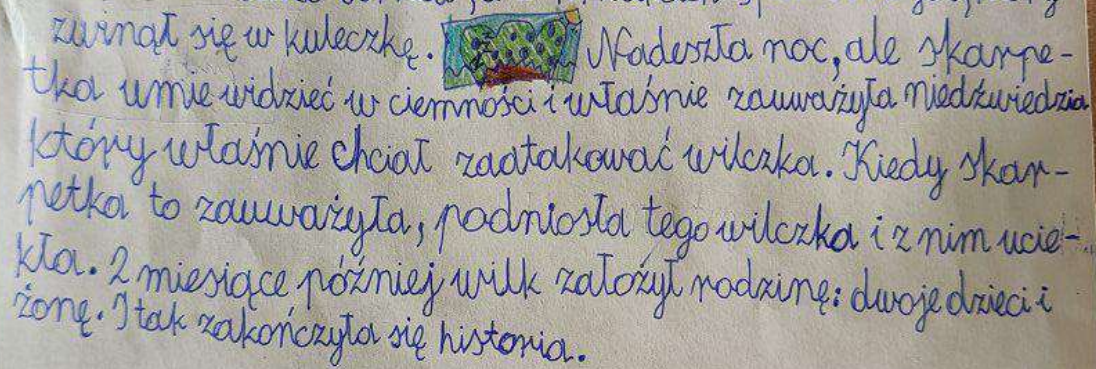 zwinął się w kuleczkę. Nadeszła noc, ale skarpe-
tka umie widzieć w ciemności i właśnie zauważyła niedźwiedzia
który właśnie chciał zaatakować wilczka. Kiedy skar-
petka to zauważyła, podniosła tego wilczka i z nim ucie-
kła. 2 miesiące później wilk założył rodzinę: dwoje dzieci i
żonę. I tak zakończyła się historia.